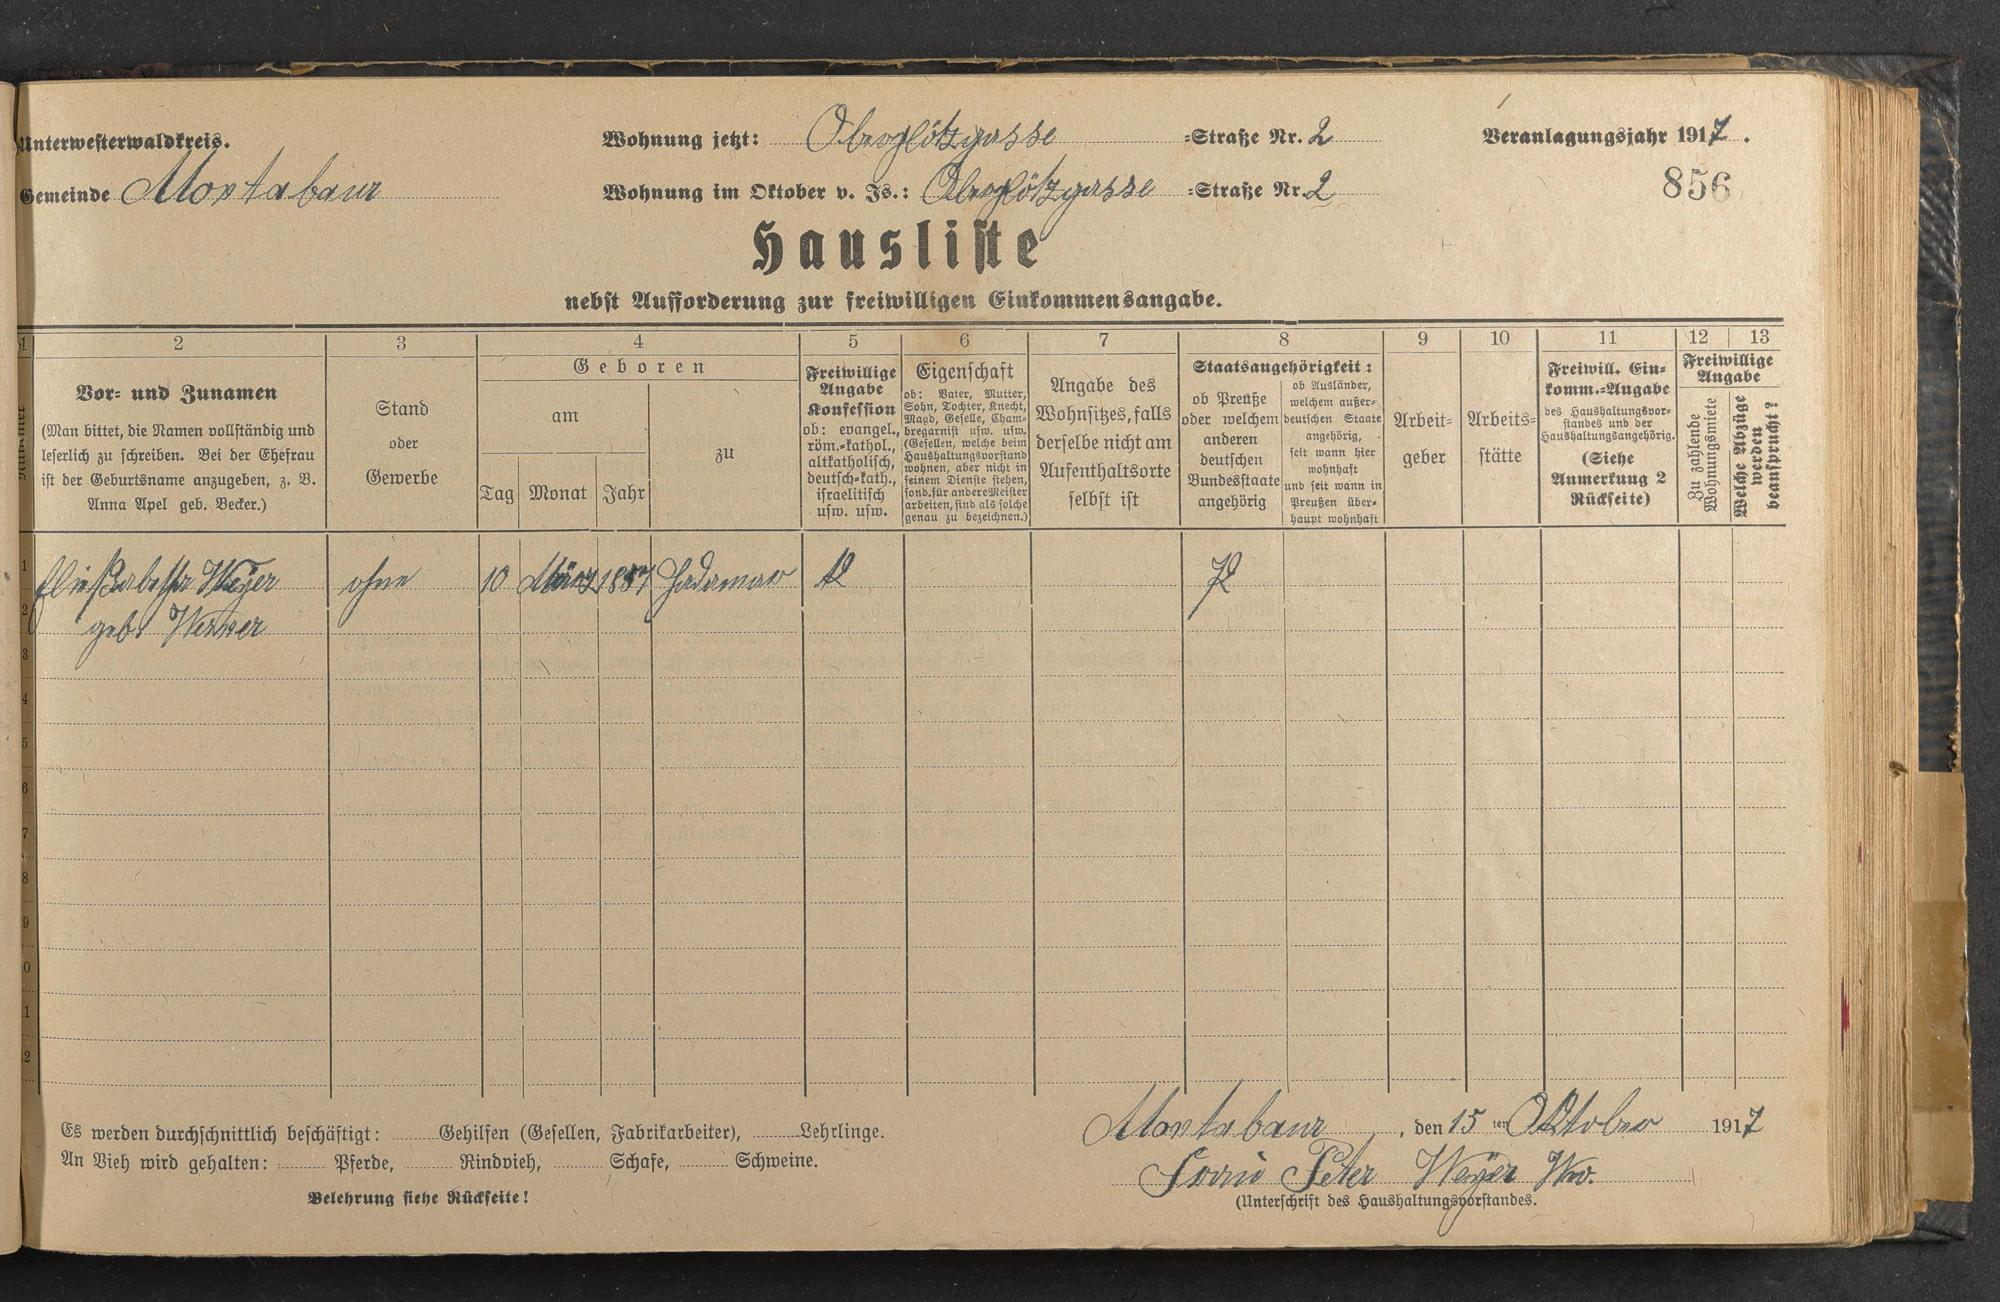 Unterwesterwaldkreis.
Wohnung jetzt: Oberglötzgasse =Straße Nr. 2
Veranlagungsjahr 1917.
Gemeinde Montabaur
Wohnung im Oktober v. Js.: Oberglötzgasse =Straße Nr. 2
856
Hausliste
nebst Aufforderung zur freiwilligen Einkommensangabe.
1 2 3 4 5 6 7 8 9 10 11 12 13
Vor- und Zunamen
(Man bittet, die Namen vollständig und
leserlich zu schreiben. Bei der Ehefrau
ist der Geburtsname anzugeben, z. B.
Anna Apel geb. Becker.)
Stand
oder
Gewerbe
Geboren
am
Tag Monat Jahr
zu
Freiwillige
Angabe
Konfession
ob: evangel.,
röm.-kathol.,
altkatholisch,
deutsch-kath.,
israelitisch
usw. usw.
Eigenschaft
ob: Vater, Mutter,
Sohn, Tochter, Knecht,
Magd, Geselle, Cham-
bregarnist usw. usw.
(Gesellen, welche beim
Haushaltungsvorstand
wohnen, aber nicht in
seinem Dienste stehen,
sond. für andere Meister
arbeiten, sind als solche
genau zu bezeichnen.)
Angabe des
Wohnsitzes, falls
derselbe nicht am
Aufenthaltsorte
selbst ist
Staatsangehörigkeit:
ob Preuße
oder welchem
anderen
deutschen
Bundesstaate
angehörig
ob Ausländer,
welchem außer-
deutschen Staate
angehörig,
seit wann hier
wohnhaft
und seit wann in
Preußen über-
haupt wohnhaft
Arbeit-
geber
Arbeits-
stätte
Freiwill. Ein-
komm.-Angabe
des Haushaltungsvor-
standes und der
Haushaltungsangehörig.
(Siehe
Anmerkung 2
Rückseite)
Freiwillige
Angabe
Zu zahlende
Wohnungsmiete
Welche Abzüge
werden
beansprucht?
1 Weyer ohne 10 März 1857 Hadamar
2 geb. Werner
3
4
5
6
7
8
9
10
11
12
Es werden durchschnittlich beschäftigt: Gehilfen (Gesellen, Fabrikarbeiter), Lehrlinge.
An Vieh wird gehalten: Pferde, Rindvieh, Schafe, Schweine.
Belehrung siehe Rückseite!
Montabaur, den 15 ten Oktober 1917
Peter Weyer Ww.
(Unterschrift des Haushaltungsvorstandes.